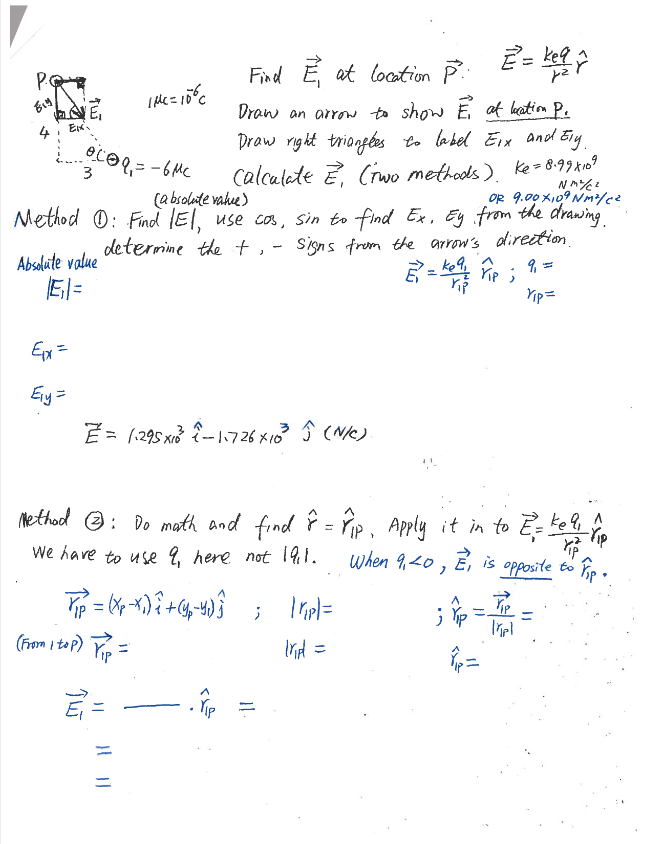 Find E⃗₁ at location P⃗: E⃗ = keq/r² r̂
P.
1μc = 10⁻⁶C
E1y
E⃗₁
E1x
Draw an arrow to show E⃗₁ at location P.
4
Draw right triangles to label E1x and E1y.
θ
3
q₁ = -6μc
Calculate E⃗₁ (Two methods). Ke = 8.99x10⁹ Nm²/c²
(absolute value)
OR 9.00x10⁹Nm²/c²
Method ①: Find |E|, use cos, sin to find Ex, Ey from the drawing,
determine the +, - signs from the arrow's direction.
Absolute value
|E₁| =
E⃗₁ = keq₁/r1p² r̂1p ; q₁ =
r1p =
E1x =
E1y =
E⃗ = 1.295x10³ î - 1.726x10³ ĵ (N/c)
Method ②: Do math and find r̂ = r̂1p, Apply it in to E⃗₁ = keq₁/r1p² r̂1p
We have to use q₁ here not |q₁|. When q₁<0, E⃗₁ is opposite to r̂1p.
r⃗1p = (xp-x₁)î + (yp-y₁)ĵ ; |r1p| = ; r̂1p = r⃗1p/|r1p| =
(From 1 to p) r⃗1p = |r1p| = r̂1p =
E⃗₁ = ——— . r̂1p =
=
=